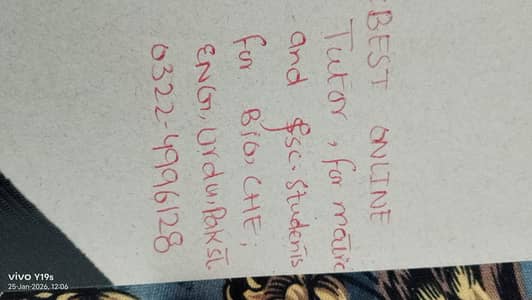 BEST ONLINE
Tutor, for matric
and fsc. Students
for Bio, CHE,
ENG, Urdu, Pak St
0322-4996128
vivo Y19s
25-Jan-2026, 12:06